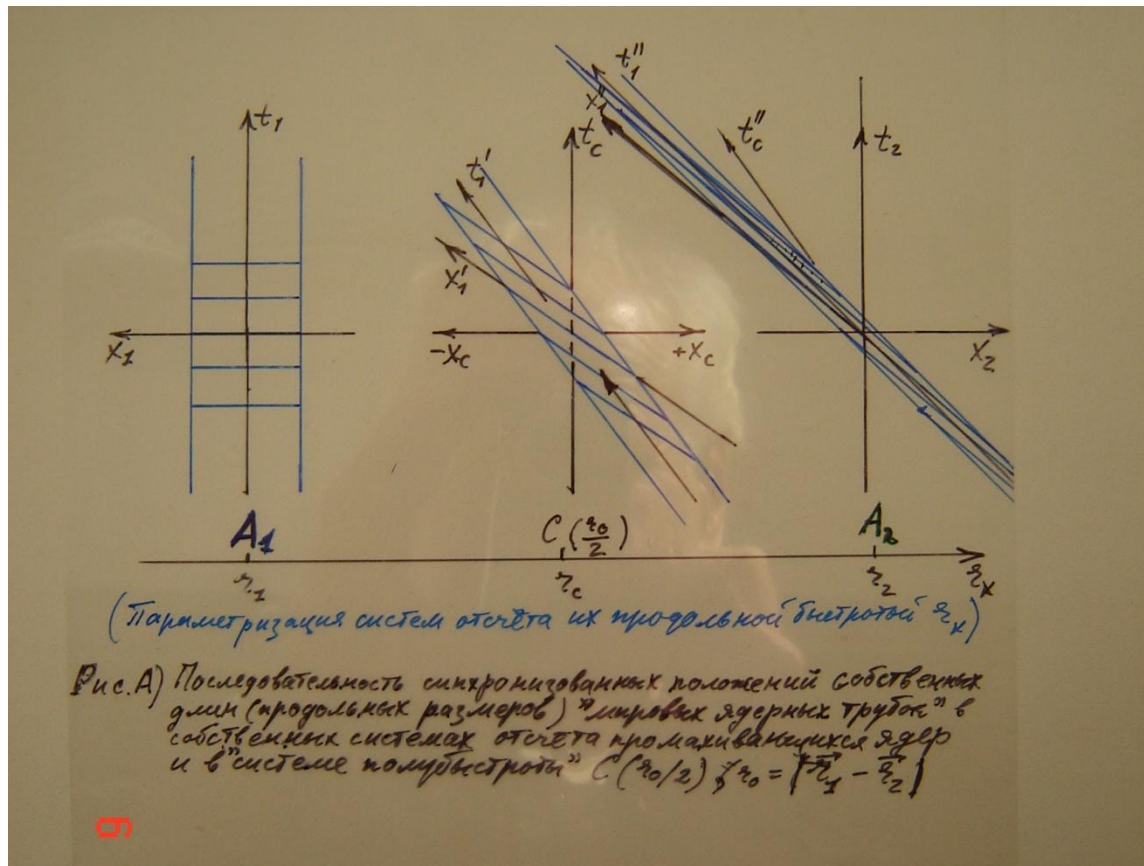 t₁
x₁
t₁'
x₁'
t_c
-x_c
+x_c
t₁''
x₁''
t_c''
t₂
x₂
A₁
C (r₀/2)
A₂
r₁
r_c
r₂
r_x
(Параметризация систем отсчёта их продольной быстротой r_x)
Рис. А) Последовательность синхронизованных положений собственных
длин (продольных размеров) "мировых ядерных трубок" в
собственных системах отсчёта промахивающихся ядер
и в "системе полубыстроты" C (r₀/2) ; r₀ = |r⃗₁ - r⃗₂|